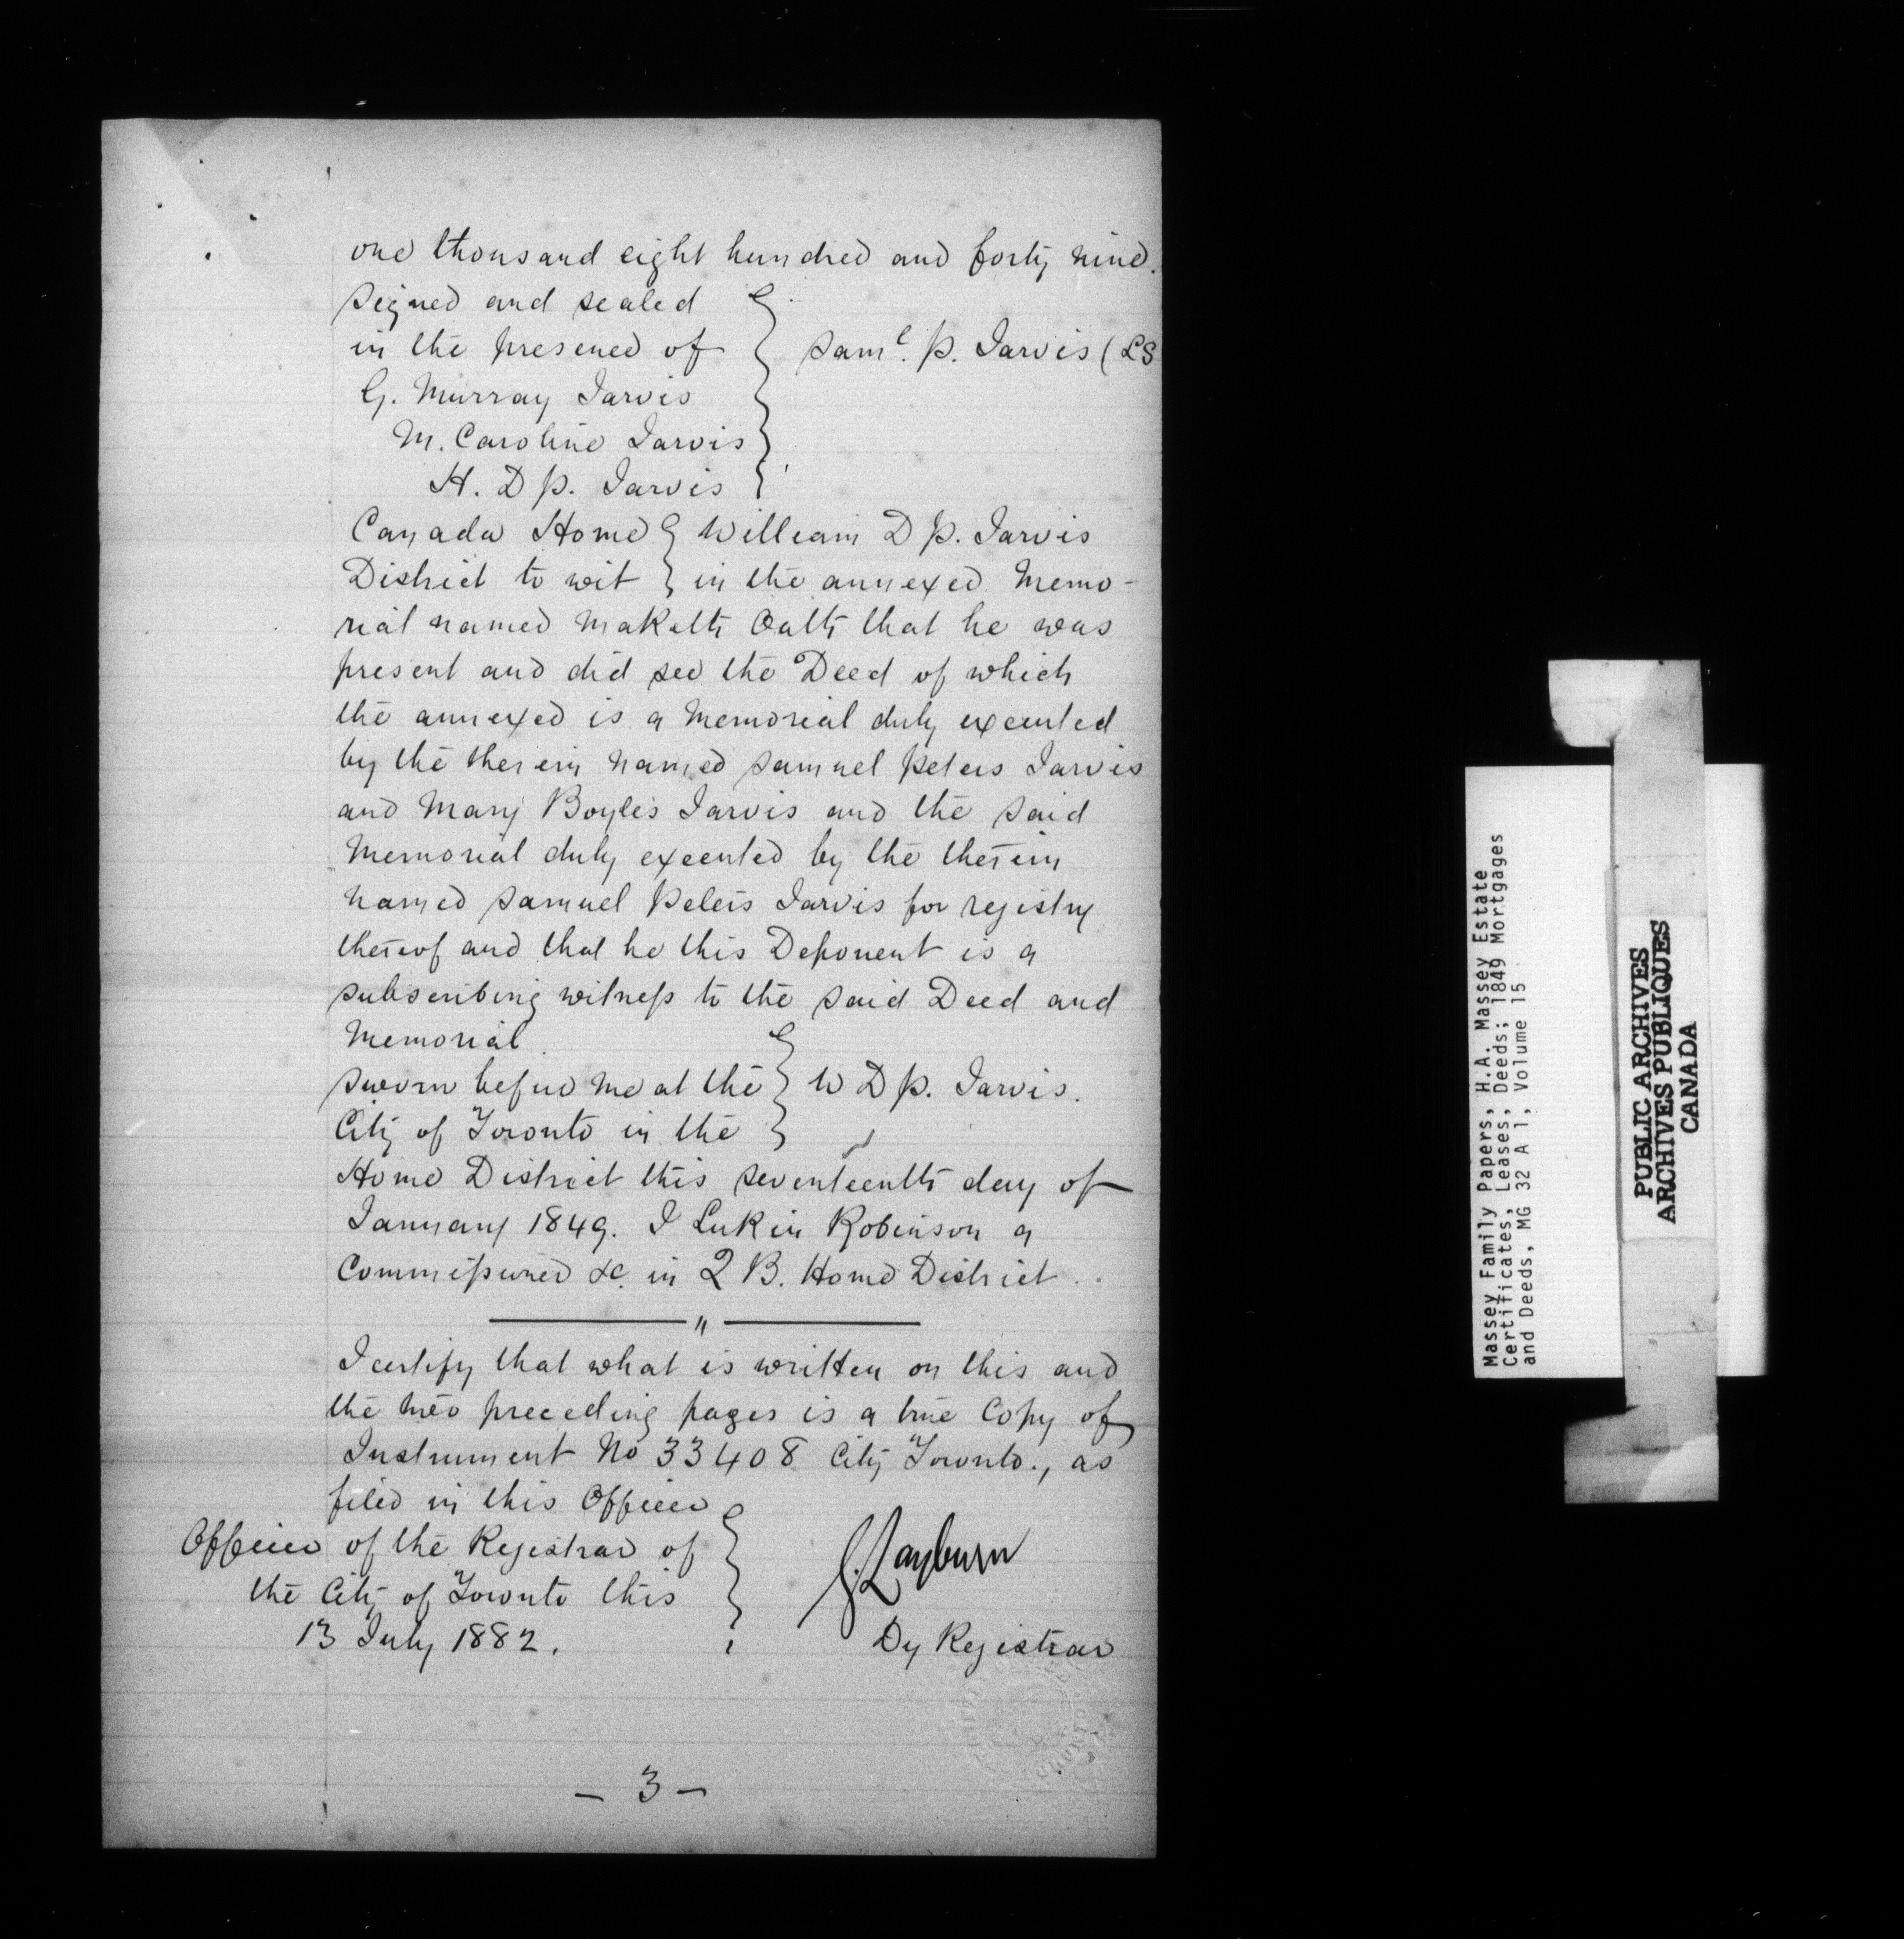 one thousand eight hundred and forty nine.
Signed and sealed
in the presence of
Saml. P. Jarvis (LS
G. Murray Jarvis
M. Caroline Jarvis
H. D P. Jarvis
Canada Home } William D P. Jarvis
District to wit } in the annexed Memo-
rial named maketh Oath that he was
present and did see the Deed of which
the annexed is a Memorial duly executed
by the therein named Samuel Peters Jarvis
and Mary Boyles Jarvis and the said
Memorial duly executed by the therein
named Samuel Peters Jarvis for registry
thereof and that he this Deponent is a
subscribing witness to the said Deed and
Memorial
Sworn before me at the } W D P. Jarvis.
City of Toronto in the }
Home District this seventeenth day of
January 1849. J Lukin Robinson a
Commissioner &c. in Q B. Home District
I certify that what is written on this and
the two preceding pages is a true Copy of
Instrument No 33408 City Toronto., as
filed in this Office
Office of the Registrar of
the City of Toronto this
13 July 1882.
Dy Registrar
- 3 -
Massey Family Papers, H.A. Massey Estate
Certificates, Leases, Deeds; 1849 Mortgages
and Deeds, MG 32 A 1, Volume 15
PUBLIC ARCHIVES
ARCHIVES PUBLIQUES
CANADA